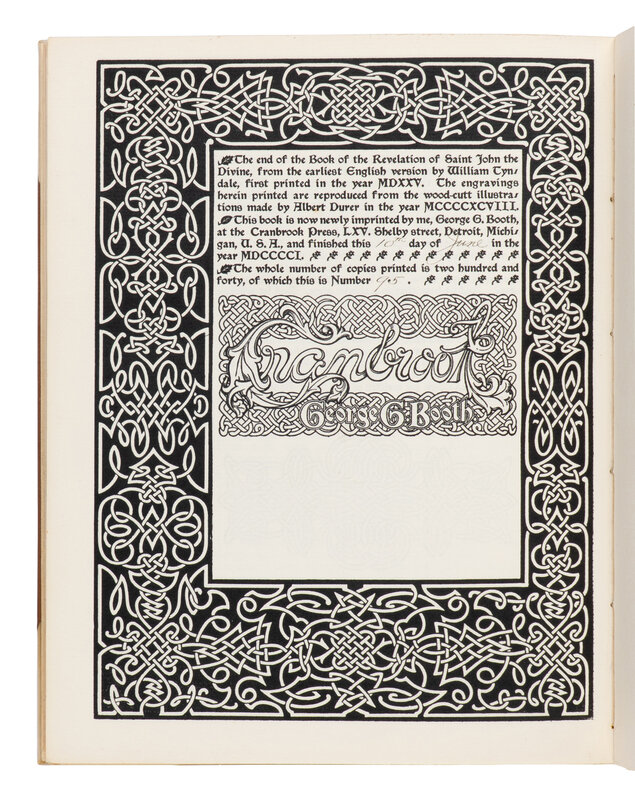 The end of the Book of the Revelation of Saint John the
Divine, from the earliest English version by William Tyn-
dale, first printed in the year MDXXV. The engravings
herein printed are reproduced from the wood-cutt illustra-
tions made by Albert Durer in the year MCCCCXCVIII.
This book is now newly imprinted by me, George G. Booth,
at the Cranbrook Press, LXV. Shelby street, Detroit, Michi-
gan, U. S. A., and finished this 10th day of June in the
year MDCCCCI.
The whole number of copies printed is two hundred and
forty, of which this is Number 95.
Cranbrook
George G. Booth